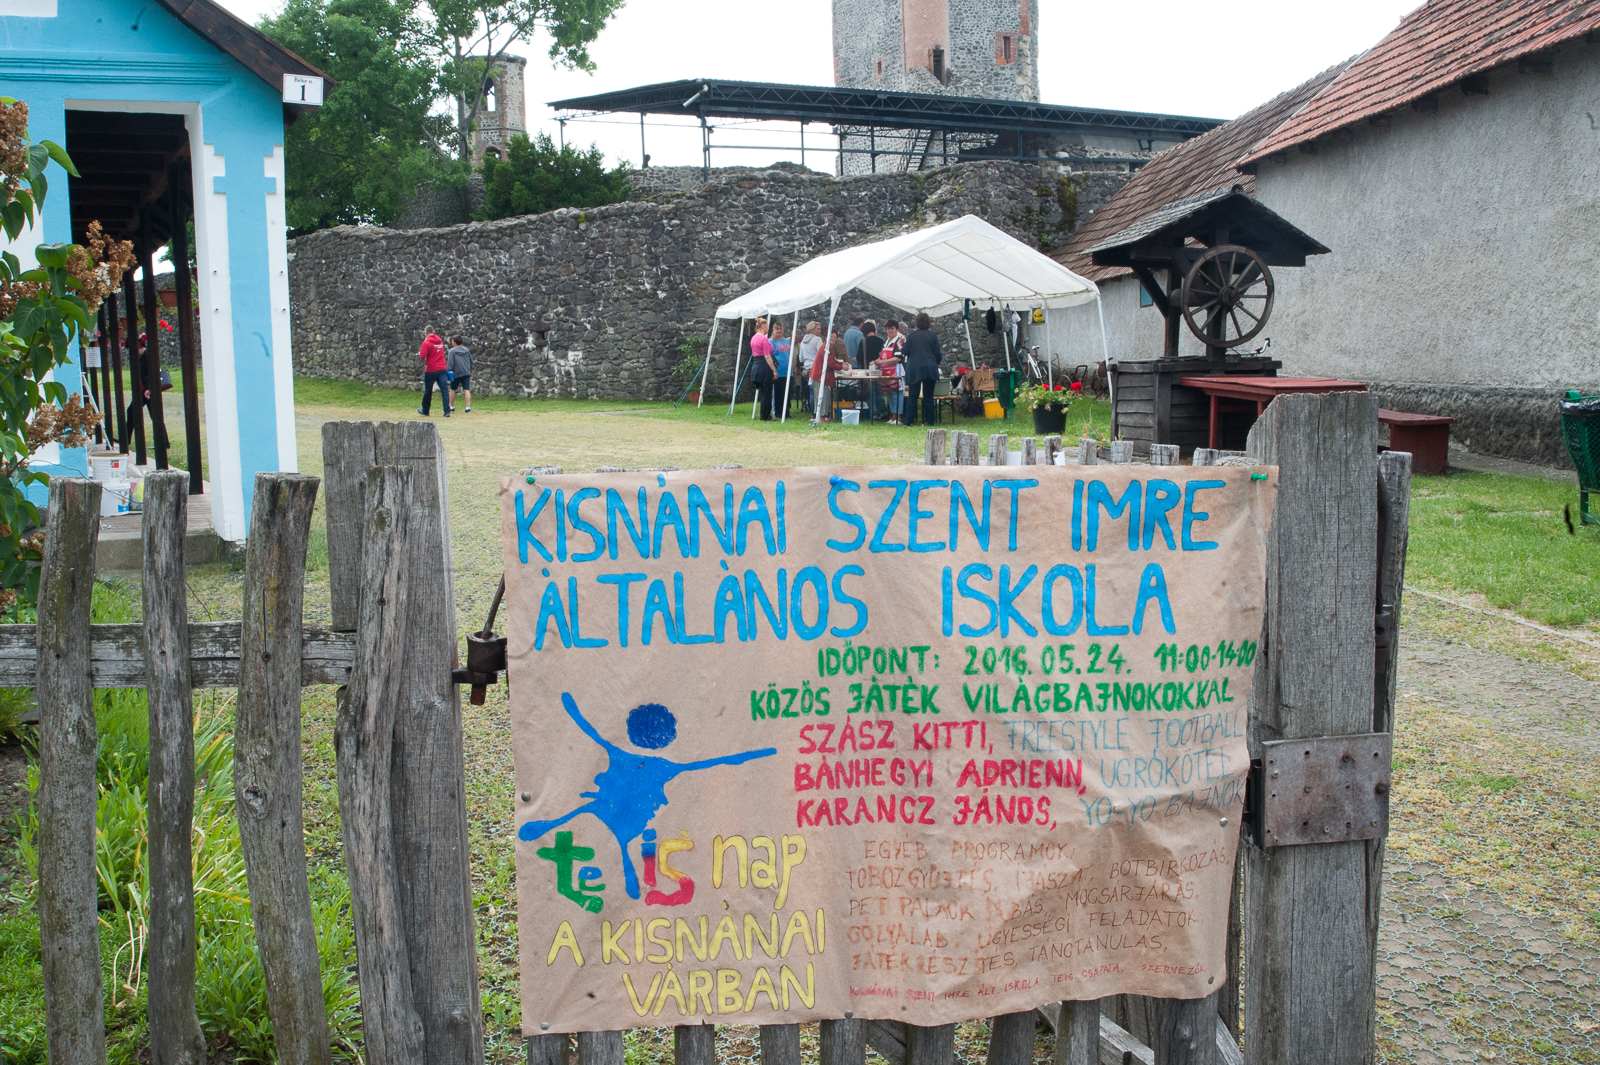 Béke u.
1
KISNÁNAI SZENT IMRE
ÁLTALÁNOS ISKOLA
IDŐPONT: 2016.05.24. 11:00-14:00
KÖZÖS JÁTÉK VILÁGBAJNOKOKKAL
SZÁSZ KITTI, FREESTYLE FOOTBALL
BÁNHEGYI ADRIENN, UGRÓKÖTÉL
KARANCZ JÁNOS, YO-YO BAJNOK
te is nap
A KISNÁNAI
VÁRBAN
EGYÉB PROGRAMOK:
TOBOZGYŰJTÉS, ÍJÁSZAT, BOTBIRKÓZÁS,
PET PALACK DOBÁS, MOCSÁRJÁRÁS,
GÓLYALÁB, ÜGYESSÉGI FELADATOK
JÁTÉKKÉSZÍTÉS, TÁNCTANULÁS,
KISNÁNAI SZENT IMRE ÁLT. ISKOLA TEIS CSAPATA, SZERVEZŐK